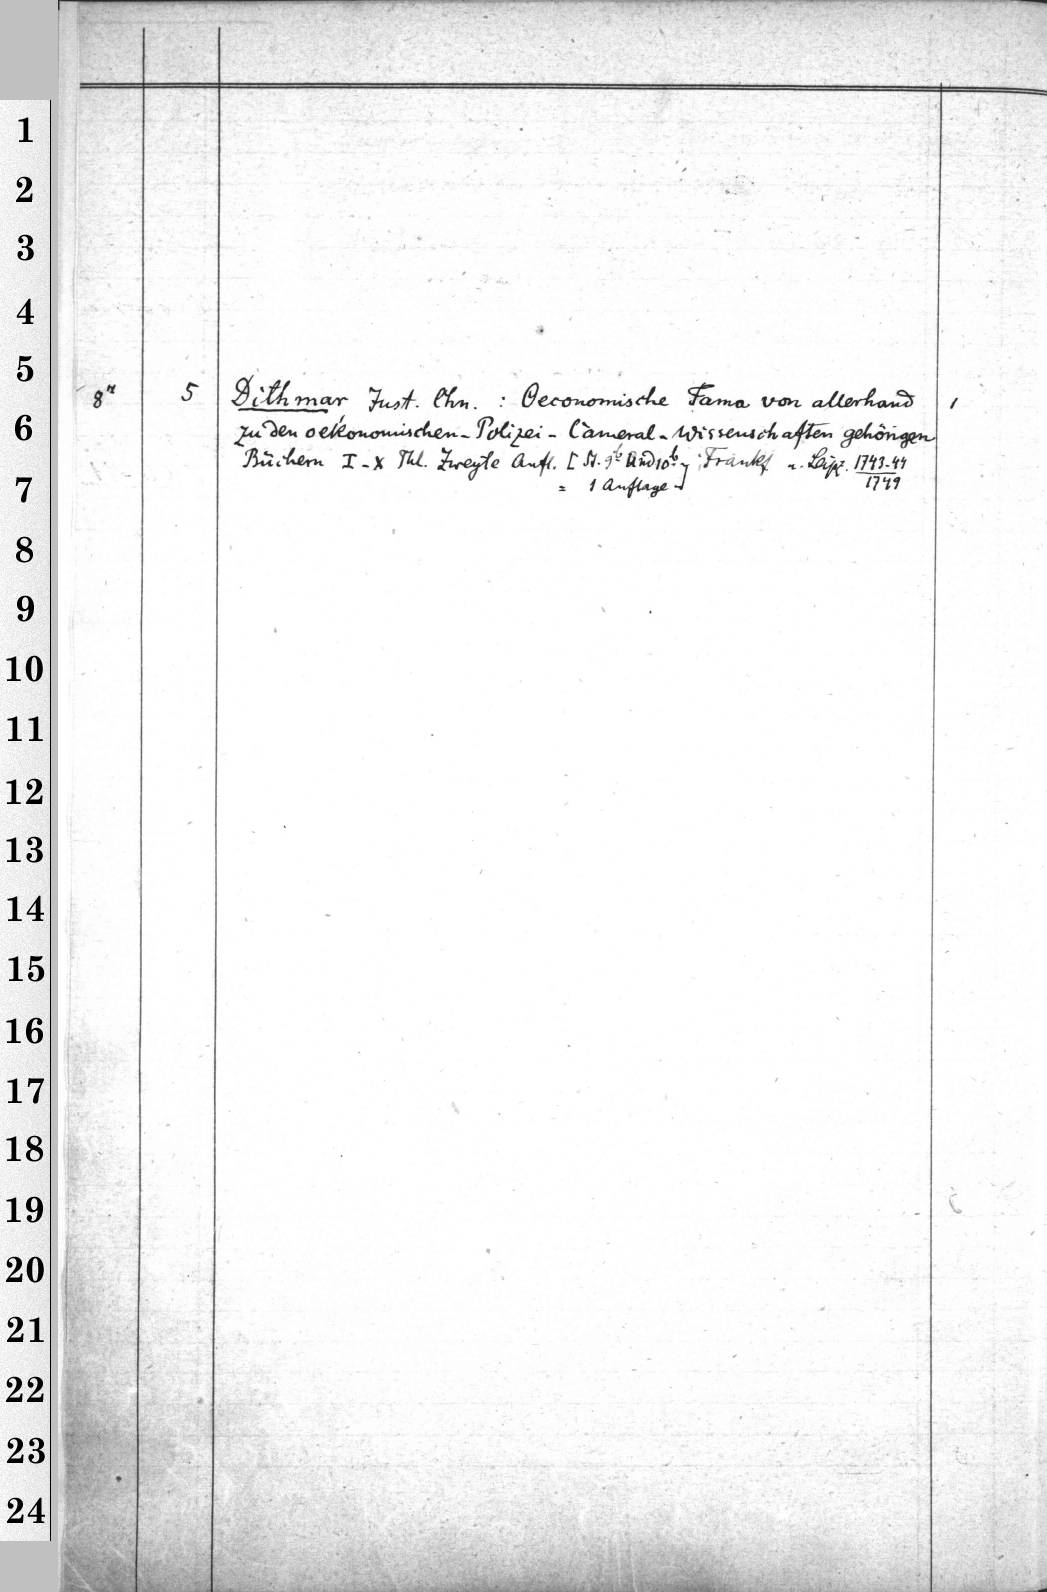 1
2
3
4
5
6
7
8
9
10
11
12
13
14
15
16
17
18
19
20
21
22
23
24
8° 5 Dithmar Just. Chn. : Oeconomische Fama von allerhand 1
zu den oekonomischen - Polizei - Cameral - Wissenschaften gehörigen
Büchern I - X Thl. Zweyte Aufl. [ St. 9b und 10b Frankf u. Leipz. 1743-44
= 1 Auflage ] 1749